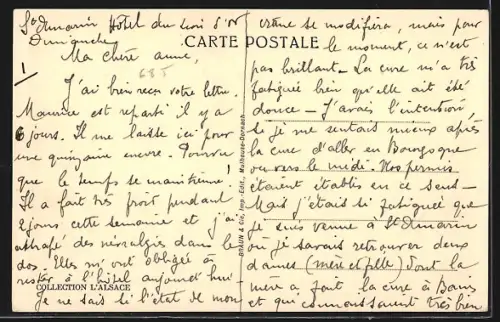 St Amarin Hôtel du Lion d'Or
Dimanche
CARTE POSTALE
Ma chère amie,
685
J'ai bien reçu votre lettre.
Maurice est reparti il y a
6 jours. Il me laisse ici pour
une quinzaine encore. Pourvu
que le temps se maintienne!
Il a fait très froid pendant
2 jours cette semaine et j'ai
attrapé des névralgies dans le
dos. Elles m'ont obligée à
rester à l'hôtel aujourd'hui.
COLLECTION L'ALSACE
Je ne sais si l'état de mon
BRAUN & Cie, Imp.-Édit., Mulhouse-Dornach
se modifiera, mais pour
le moment, ce n'est
pas brillant. La cure m'a très
fatiguée bien qu'elle ait été
douce. J'avais l'intention,
si je me sentais mieux après
la cure d'aller en Bourgogne
ou vers le midi. Nos permis
étaient établis en ce sens.
Mais j'étais si fatiguée que
je suis venue à St Amarin
où je savais retrouver deux
dames (mère et fille) dont la
mère a fait la cure à
et qui connaissaient très bien